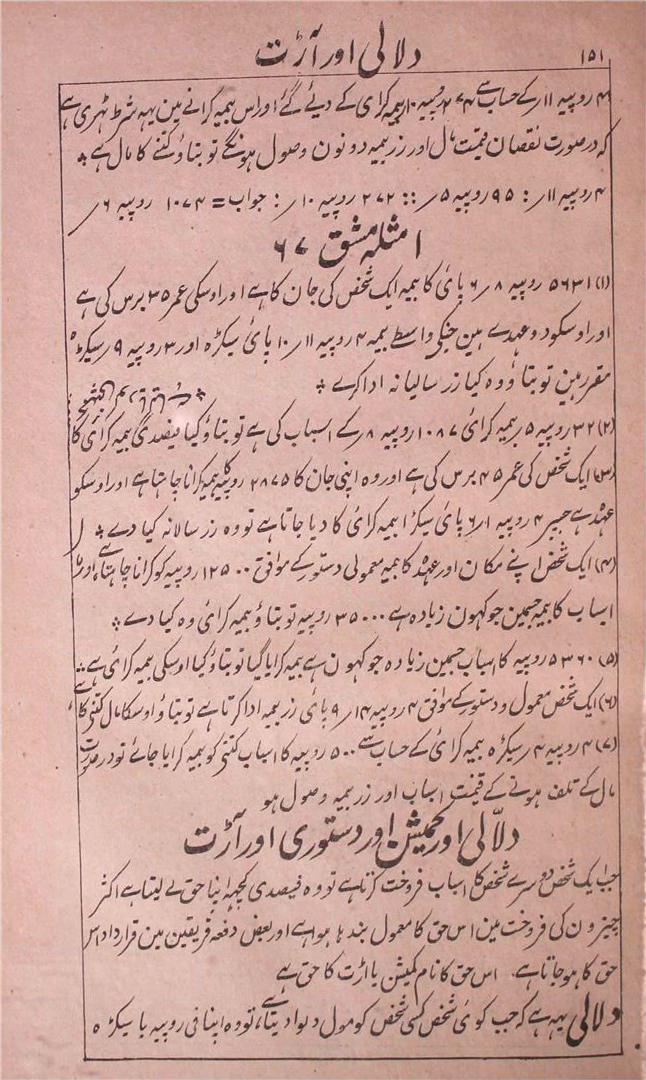 ۱۵۱
دلالی اور آڑت
۴ روپیہ ۱۱ر کے حساب سے ۲۷۲ روپیہ ۱۰ر بیمہ کرائ کے دیے گئے اور اس بیمہ کرانے مین یہہ شرط ٹہری ہے
کہ در صورت نقصان قیمت مال اور زر بیمہ دونون وصول ہونگے تو بتاؤ کتنے کا مال ہے
۴ روپیہ ۱۱ر : ۹۵ روپیہ ۵ر :: ۲۷۲ روپیہ ۱۰ر : جواب = ۱۰۷۴ روپیہ ۶ر
امثلہ مشق ۶۷
(۱) ۵۶۳۱ روپیہ ۸ر ۶ پائ کا بیمہ ایک شخص کی جان کا ہے اور اوسکی عمر ۳۵ برس کی ہے
اور اوسکو دو عہدے ہین جنکے واسطے بیمہ ۴ روپیہ ۱۱ر ۱۰ پائ سیکڑہ اور ۳ روپیہ ۹ر سیکڑہ
مقرر ہین تو بتاؤ وہ کیا زر سالیانہ ادا کرے
(۲) ۳۲ روپیہ ۵ر بیمہ کرائ ۱۰۸۷ روپیہ ۸ر کے اسباب کی ہے تو بتاؤ کیا فیصدی بیمہ کرائ کا
(۳) ایک شخص کی عمر ۴۵ برس کی ہے اور وہ اپنی جان کا ۲۸۷۵ روپیہ کا بیمہ کرانا چاہتا ہے اور اوسکو
عہدہ ہے جسپر ۴ روپیہ ۱ر ۶ پائ سیکڑا بیمہ کرائ کا دیا جاتا ہے تو وہ زر سالانہ کیا دے
(۴) ایک شخص اپنے مکان اور عہدہ کا بیمہ معمولی دستور کے موافق ۱۲۵۰۰ روپیہ کو کرانا چاہتا ہے اور
اسباب کا بیمہ جسمین جوکہون زیادہ ہے ۳۵۰۰۰ روپیہ تو بتاؤ بیمہ کرائ وہ کیا دے
(۵) ۵۳۶۰ روپیہ کا اسباب جسمین زیادہ جوکہون ہے بیمہ کرایا گیا تو بتاؤ کیا اوسکی بیمہ کرائ ہے
(۶) ایک شخص معمول و دستور کے موافق ۴ روپیہ ۱۴ر ۹ پائ زر بیمہ ادا کرتا ہے تو بتاؤ اوسکا مال کتنی کا ہے
(۷) ۴ روپیہ ۴ر سیکڑہ بیمہ کرائ کے حساب سے ۵۰۰ روپیہ کا اسباب کتنی کو بیمہ کرایا جائے تو در صورت
مال کے تلف ہونے کے قیمت اسباب اور زر بیمہ وصول ہو
دلّالی اور کمیشن اور دستوری اور آڑت
جب ایک شخص دوسرے شخص کا اسباب فروخت کرتا ہے تو وہ فیصدی کچہہ اپنا حق لے لیتا ہے اکثر
چیزون کی فروخت مین اس حق کا معمول بندہا ہوا ہے اور بعض دفعہ فریقین مین قرارداد اس
حق کا ہو جاتا ہے اس حق کا نام کمیشن یا اڑت کا حق ہے
دلالی یہہ ہے کہ جب کوئ شخص کسی شخص کو مول دیوا دیتا ہے تو وہ اپنا فی روپیہ یا سیکڑہ